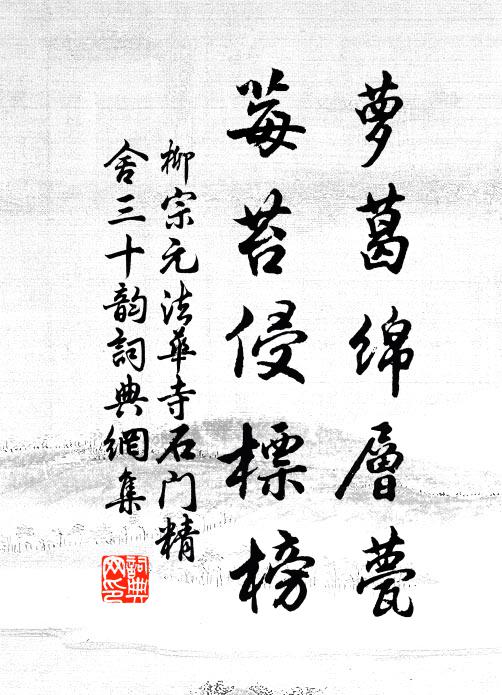 萝葛绵层甍
莓苔侵標榜
柳宗元法華寺石门精
舍三十韵詞典網集
詞典网印